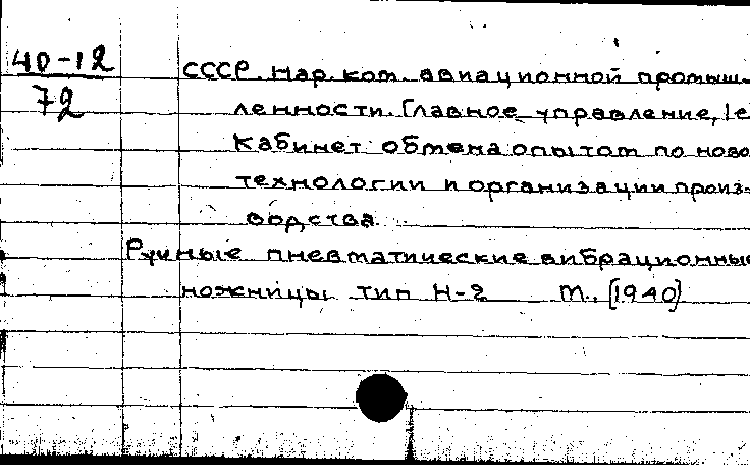 40-12
72
СССР. Нар. ком. авиационной промыш-
ленности. Главное управление, 1е
Кабинет обмена опытом по ново
технологии и организации произ-
водства
Ручные пневматические вибрационные
ножницы тип Н-2 М., [1940]